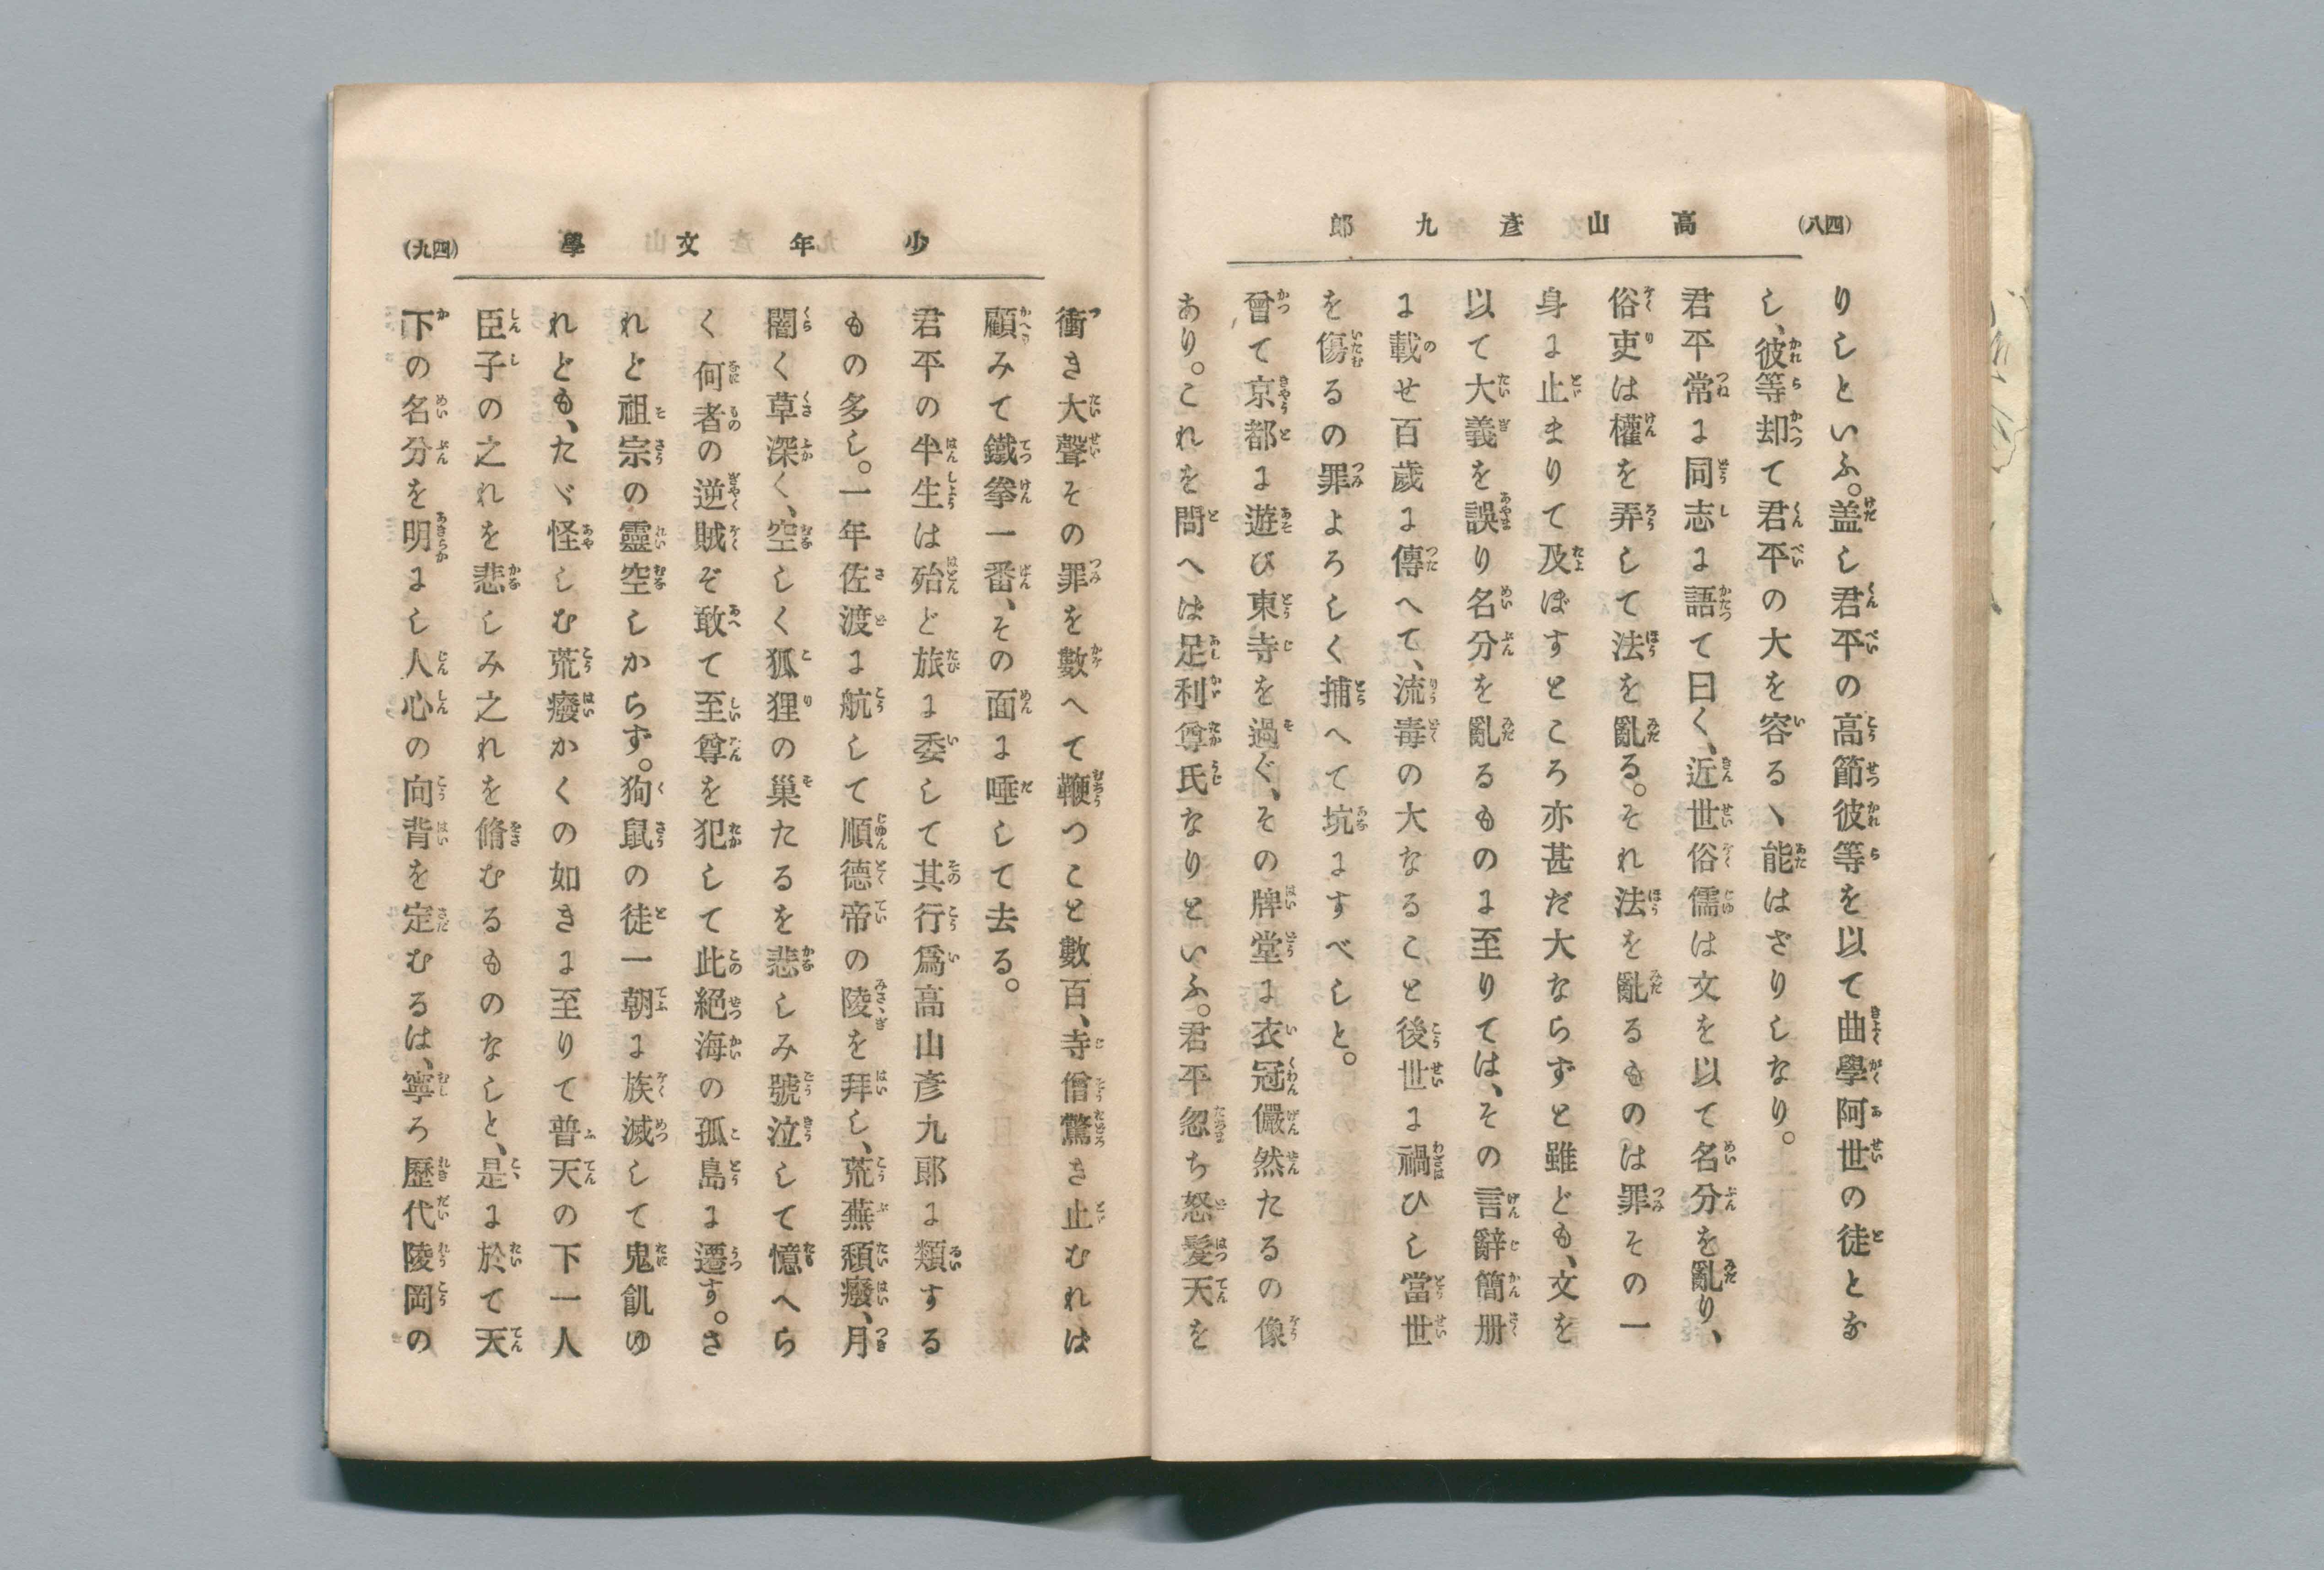 (四八)
高山彥九郎
りしといふ。盖し君平の高節彼等を以て曲學阿世の徒とな
し、彼等却て君平の大を容るヽ能はざりしなり。
君平常に同志に語て曰く、近世俗儒は文を以て名分を亂り、
俗吏は權を弄して法を亂る。それ法を亂るものは罪その一
身に止まりて及ぼすところ亦甚だ大ならずと雖ども、文を
以て大義を誤り名分を亂るものに至りては、その言辭簡册
に載せ百歲に傳へて、流毒の大なること後世に禍ひし當世
を傷るの罪よろしく捕へて坑にすべしと。
曾て京都に遊び東寺を過ぐ、その牌堂に衣冠儼然たるの像
あり。これを問へは足利尊氏なりといふ。君平忽ち怒髮天を
少年文學
(四九)
衝き大聲その罪を數へて鞭つこと數百、寺僧驚き止むれは
顧みて鐵拳一番、その面に唾して去る。
君平の半生は殆ど旅に委して其行爲高山彥九郎に類する
もの多し。一年佐渡に航して順德帝の陵を拜し、荒蕪頽癈、月
闇く草深く、空しく狐狸の巢たるを悲しみ號泣して憶へら
く何者の逆賊ぞ敢て至尊を犯して此絕海の孤島に遷す。さ
れと祖宗の靈空しからず。狗鼠の徒一朝に族滅して鬼飢ゆ
れとも、たヾ怪しむ荒癈かくの如きに至りて普天の下一人
臣子の之れを悲しみ之れを脩むるものなしと、是に於て天
下の名分を明にし人心の向背を定むるは、寧ろ歷代陵岡の